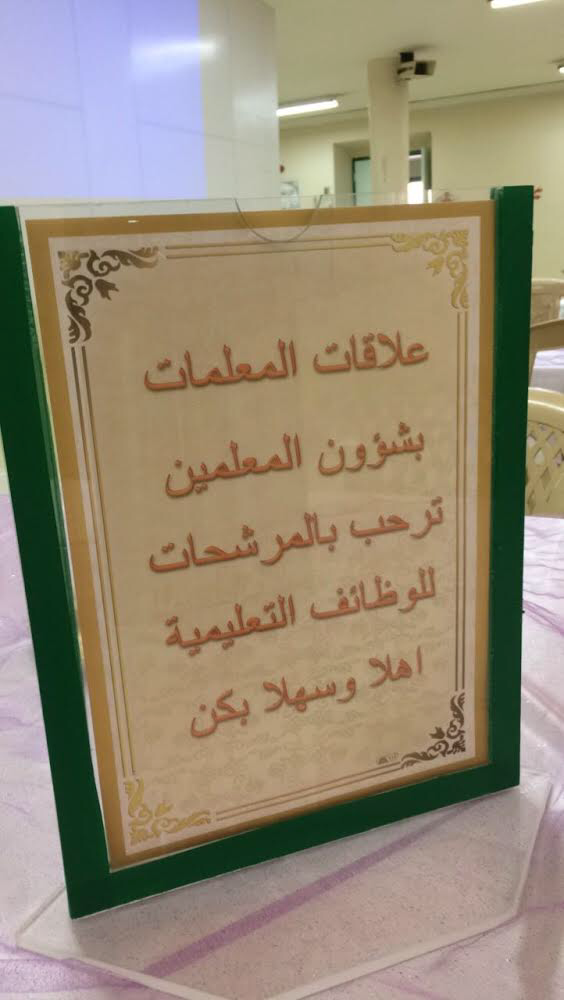 علاقات المعلمات
بشؤون المعلمين
ترحب بالمرشحات
للوظائف التعليمية
اهلا وسهلا بكن